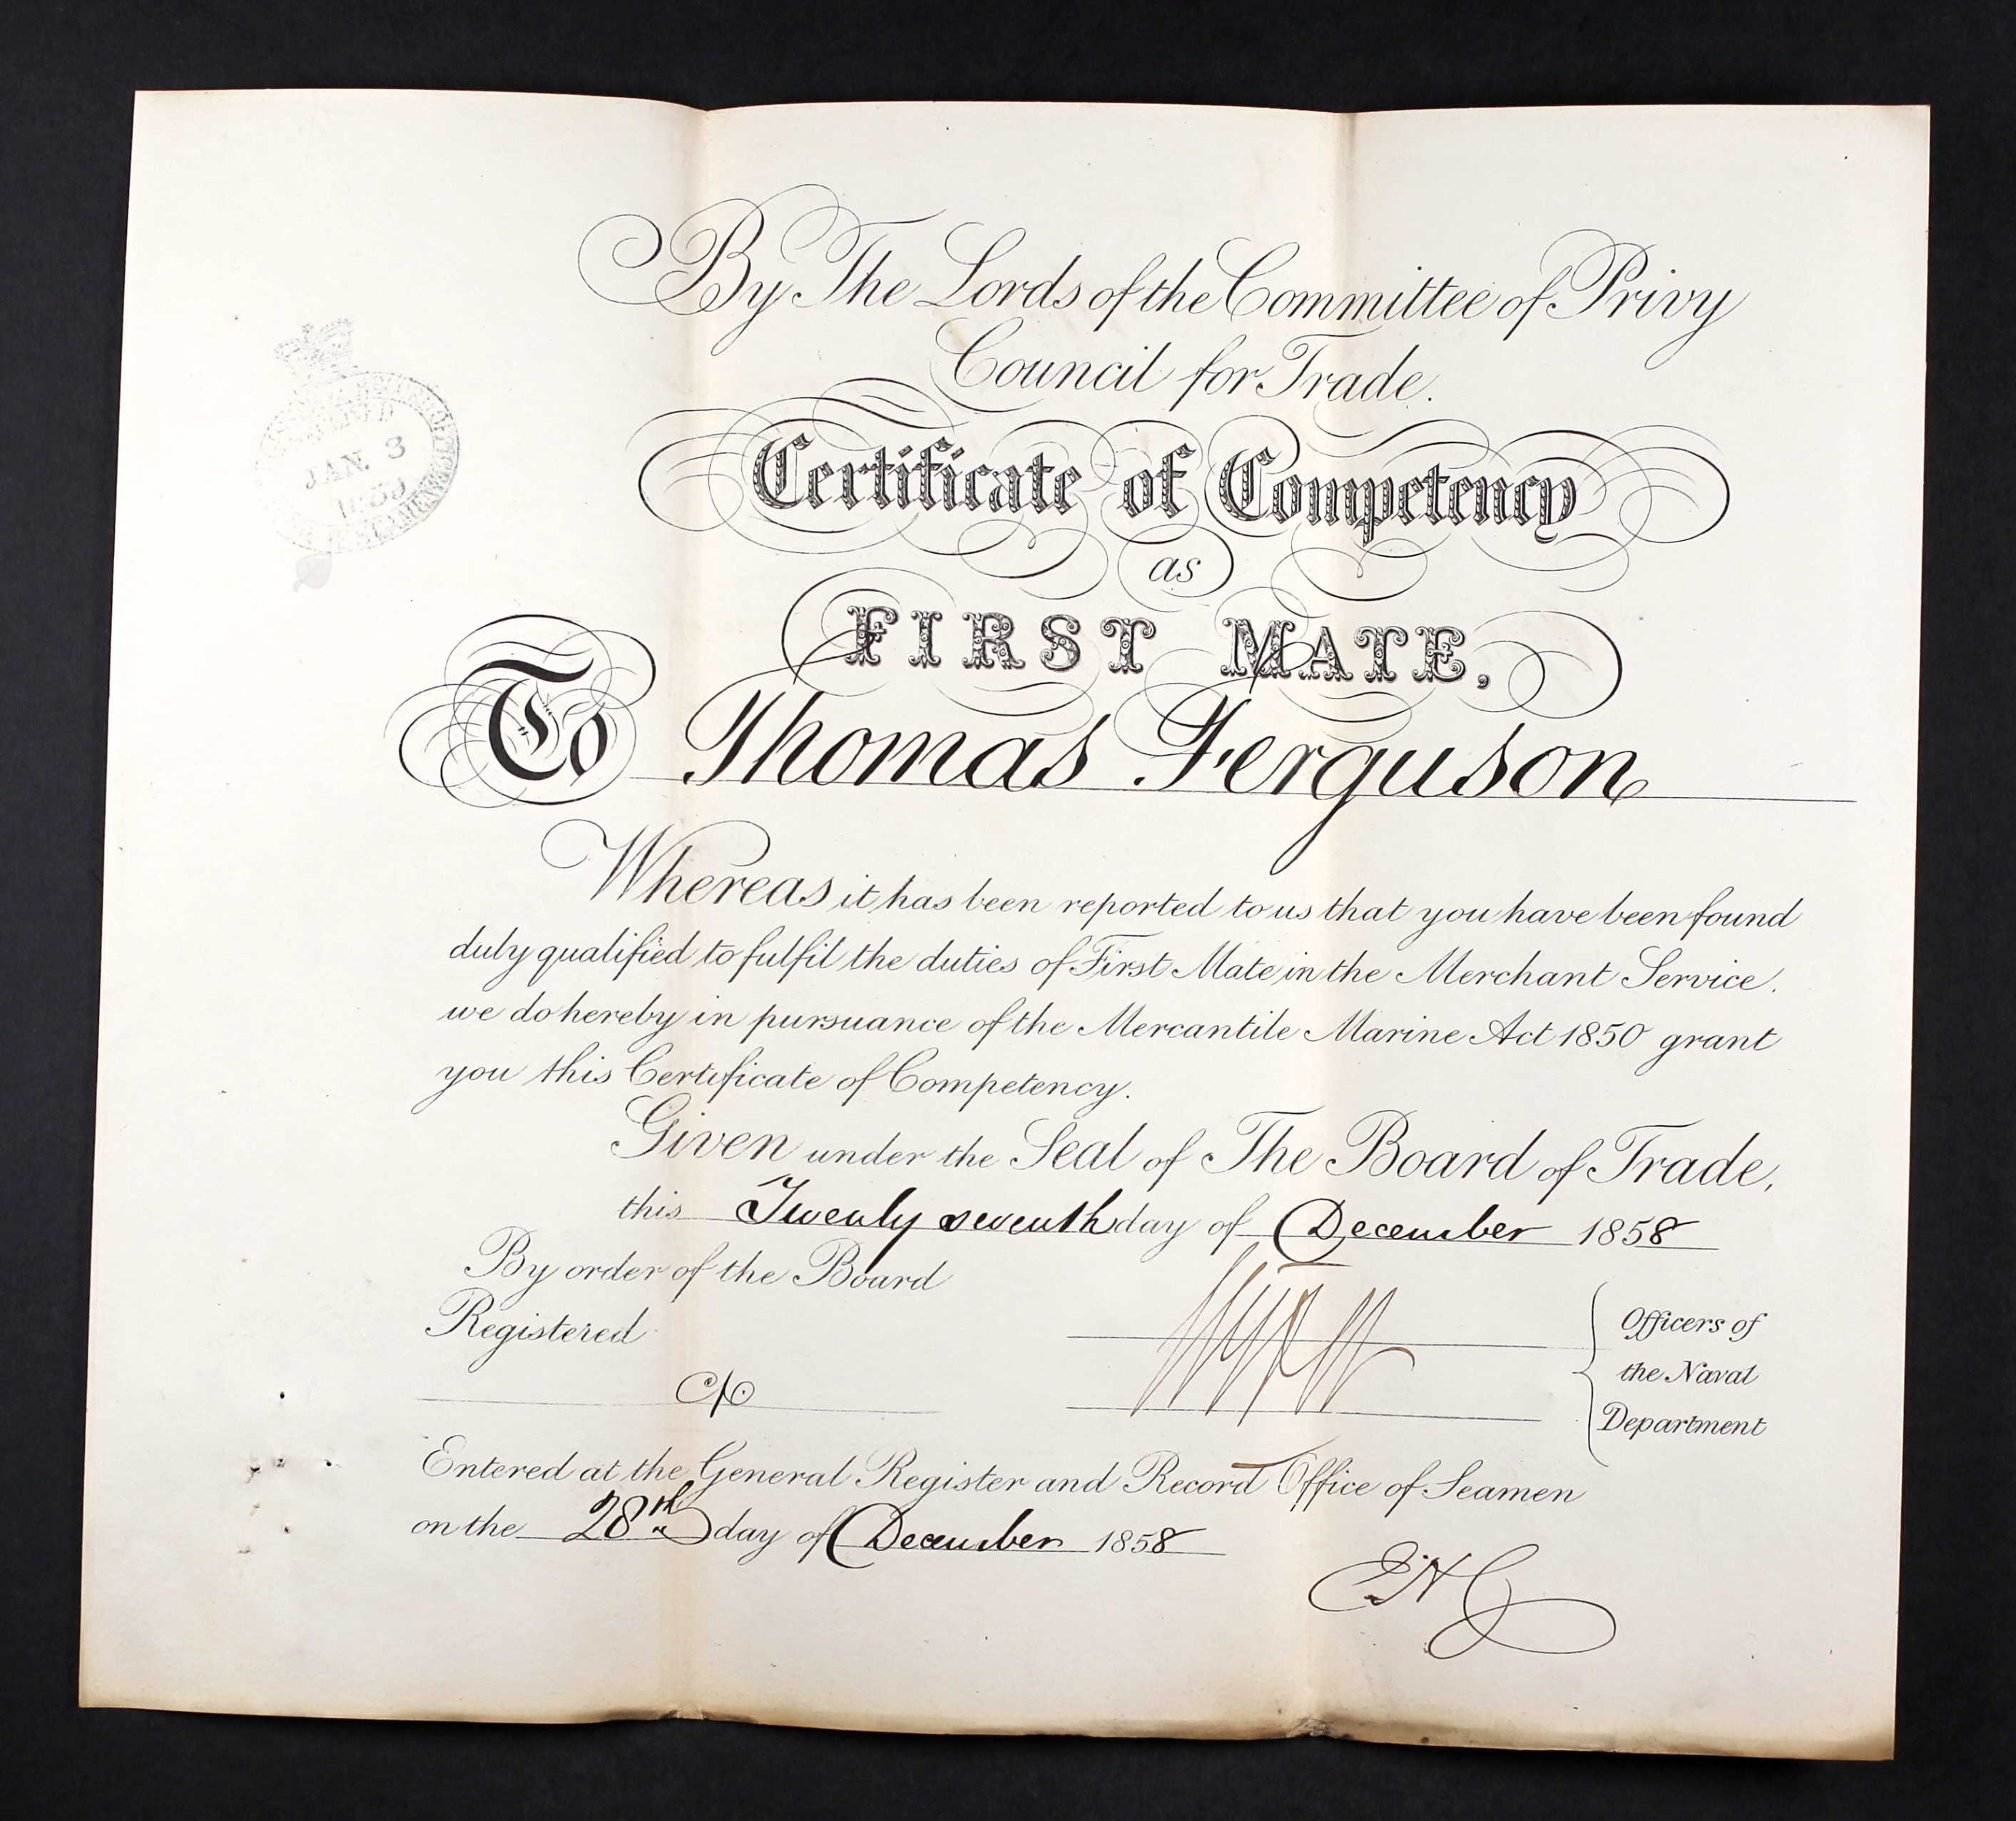 By The Lords of the Committee of Privy
Council for Trade.
Certificate of Competency
as
FIRST MATE,
To Thomas Ferguson
Whereas it has been reported to us that you have been found
duly qualified to fulfil the duties of First Mate in the Merchant Service.
we do hereby in pursuance of the Mercantile Marine Act 1850 grant
you this Certificate of Competency.
Given under the Seal of The Board of Trade,
this Twenty seventh day of December 1858
By order of the Board
Registered
Officers of
the Naval
Department
Entered at the General Register and Record Office of Seamen
on the 28th day of December 1858
JAN. 3
1859